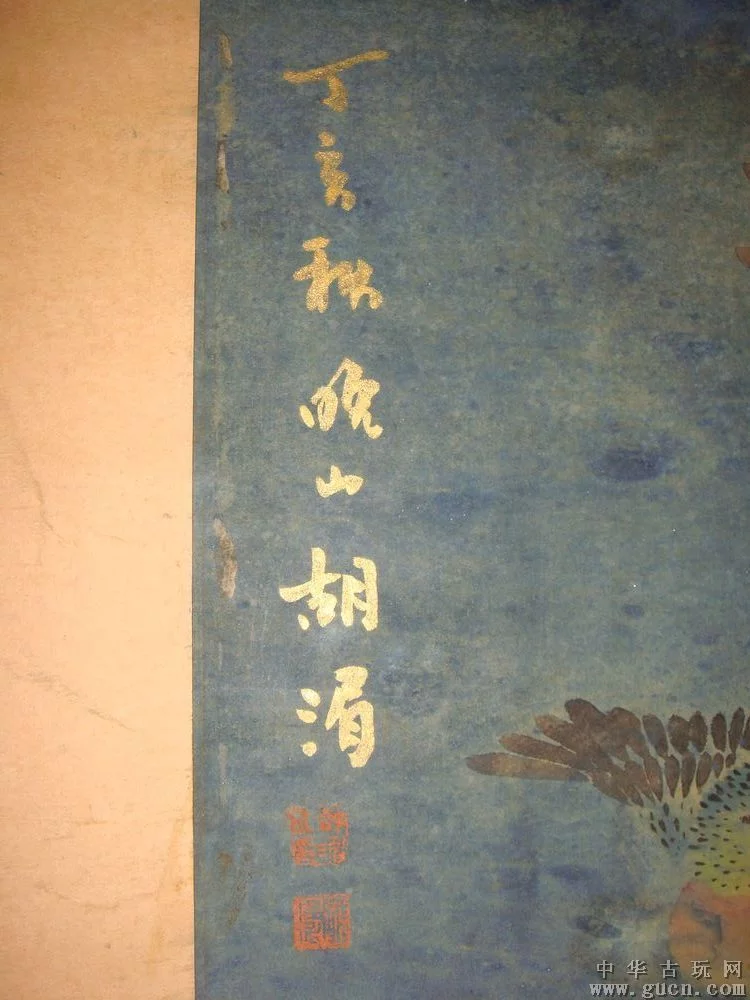 丁亥秋晚山胡湄
中华古玩网
www.gucn.com